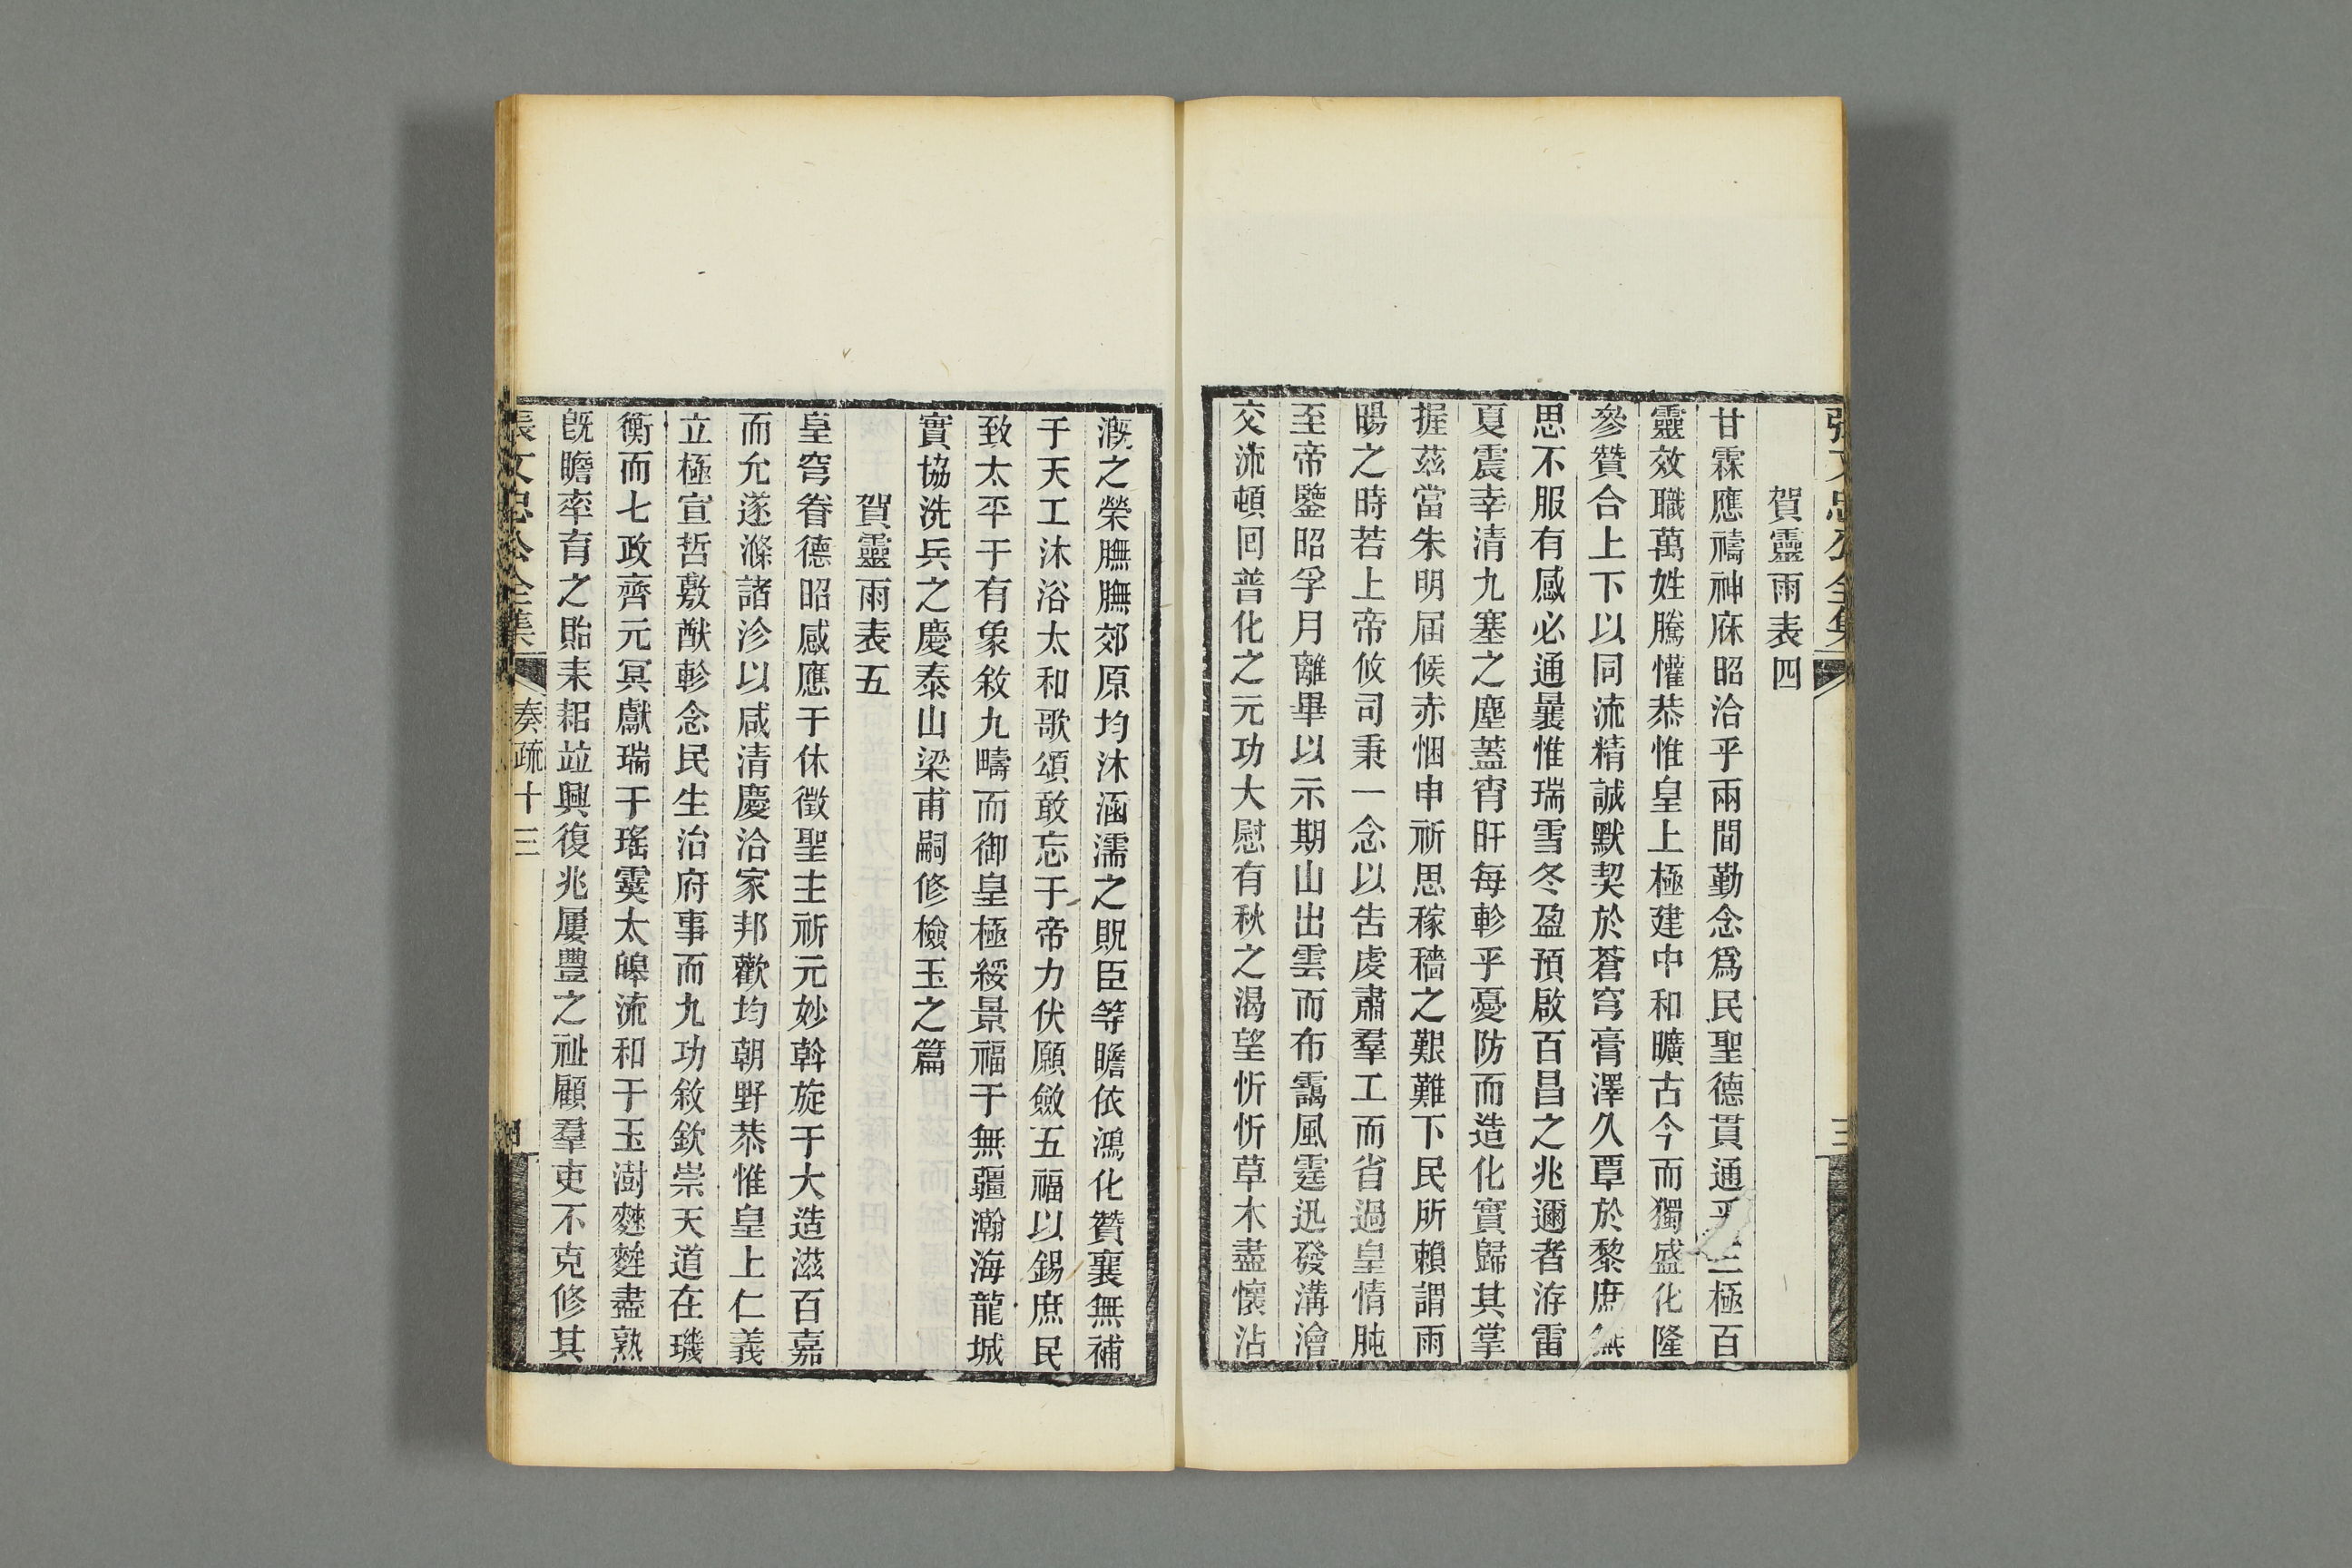 張文忠公全集
三
賀靈雨表四
甘霖應禱神庥昭洽乎兩間勤念爲民聖德貫通乎三極百
靈效職萬姓騰懽恭惟皇上極建中和曠古今而獨盛化隆
參贊合上下以同流精誠默契於蒼穹膏澤久覃於黎庶無
思不服有感必通曩惟瑞雪冬盈預啟百昌之兆邇者洊雷
夏震幸清九塞之塵蓋宵旰每軫乎憂防而造化實歸其掌
握茲當朱明届候赤悃申祈思稼穡之艱難下民所賴謂雨
暘之時若上帝攸司秉一念以告虔肅羣工而省過皇情肫
至帝鑒昭孚月離畢以示期山出雲而布靄風霆迅發溝澮
交流頓回普化之元功大慰有秋之渴望忻忻草木盡懷沾
溉之榮膴膴郊原均沐涵濡之貺臣等瞻依鴻化贊襄無補
于天工沐浴太和歌頌敢忘于帝力伏願斂五福以錫庶民
致太平于有象敘九疇而御皇極綏景福于無疆瀚海龍城
實協洗兵之慶泰山梁甫嗣修檢玉之篇
賀靈雨表五
皇穹眷德昭感應于休徵聖主祈元妙斡旋于大造滋百嘉
而允遂滌諸沴以咸清慶洽家邦歡均朝野恭惟皇上仁義
立極宣哲敷猷軫念民生治府事而九功敘欽崇天道在璣
衡而七政齊元冥獻瑞于瑤霙太皞流和于玉澍麰麰盡熟
旣瞻率育之貽耒耜竝興復兆屢豐之祉顧羣吏不克修其
張文忠公全集
奏疏十三
四